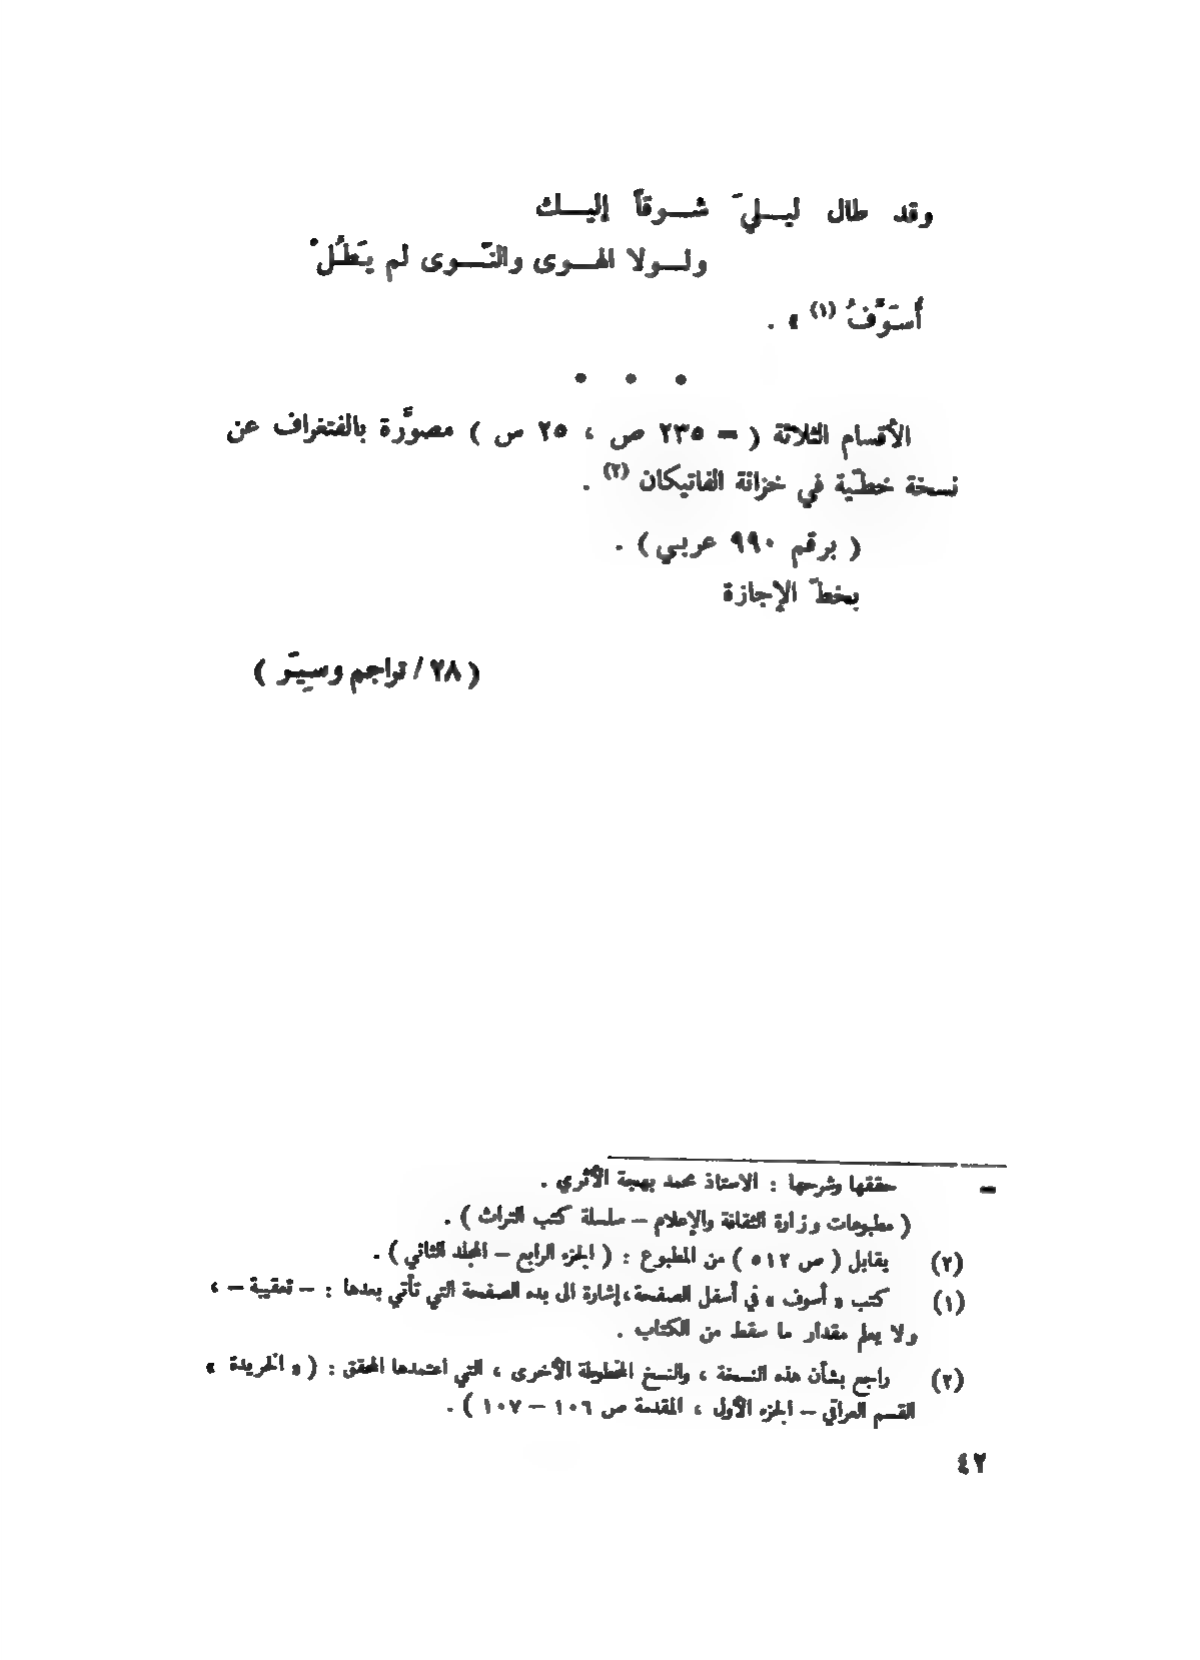 وقد طال ليـليَ شـوقاً إليـك
ولـولا الهـوى والنّـوى لم يَطُلْ
أُسَوِّفُ (١) » .
• • •
الأقسام الثلاثة ( = ٢٣٥ ص ، ٢٥ س ) مصوَّرة بالفتغراف عن
نسخة خطّية في خزانة الفاتيكان (٢) .
( برقم ٩٩٠ عربي ) .
بخطّ الإجازة
( ٢٨ / تراجم وسِيَر )
= حققها وشرحها : الاستاذ محمد بهجة الأثري .
( مطبوعات وزارة الثقافة والإعلام – سلسلة كتب التراث ) .
(٢) يقابل ( ص ٥١٢ ) من المطبوع : ( الجزء الرابع – المجلد الثاني ) .
(١) كتب « أسوف » في أسفل الصفحة، إشارة الى بدء الصفحة التي تأتي بعدها : – تعقيبة – ،
ولا يعلم مقدار ما سقط من الكتاب .
(٢) راجع بشأن هذه النسخة ، والنسخ الخطوطة الأخرى ، التي اعتمدها المحقق : ( « الخريدة »
القسم العراقي – الجزء الأول ، المقدمة ص ١٠٦ – ١٠٧ ) .
٤٢